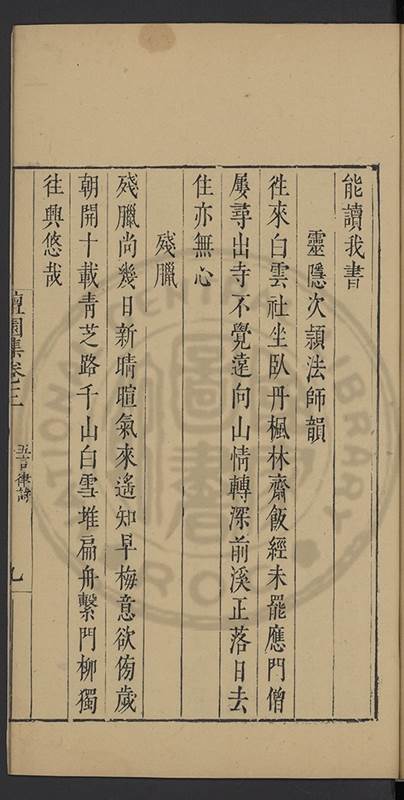 能讀我書
靈隱次頴法師韻
徃來白雲社坐臥丹楓林齋飯經未罷應門僧
屢尋出寺不覺遠向山情轉深前溪正落日去
住亦無心
殘臘
殘臘尚幾日新晴暄氣來遙知早梅意欲傍歲
朝開十載青芝路千山白雪堆扁舟繫門柳獨
往興悠哉
檀園集卷之三
五言律詩
九